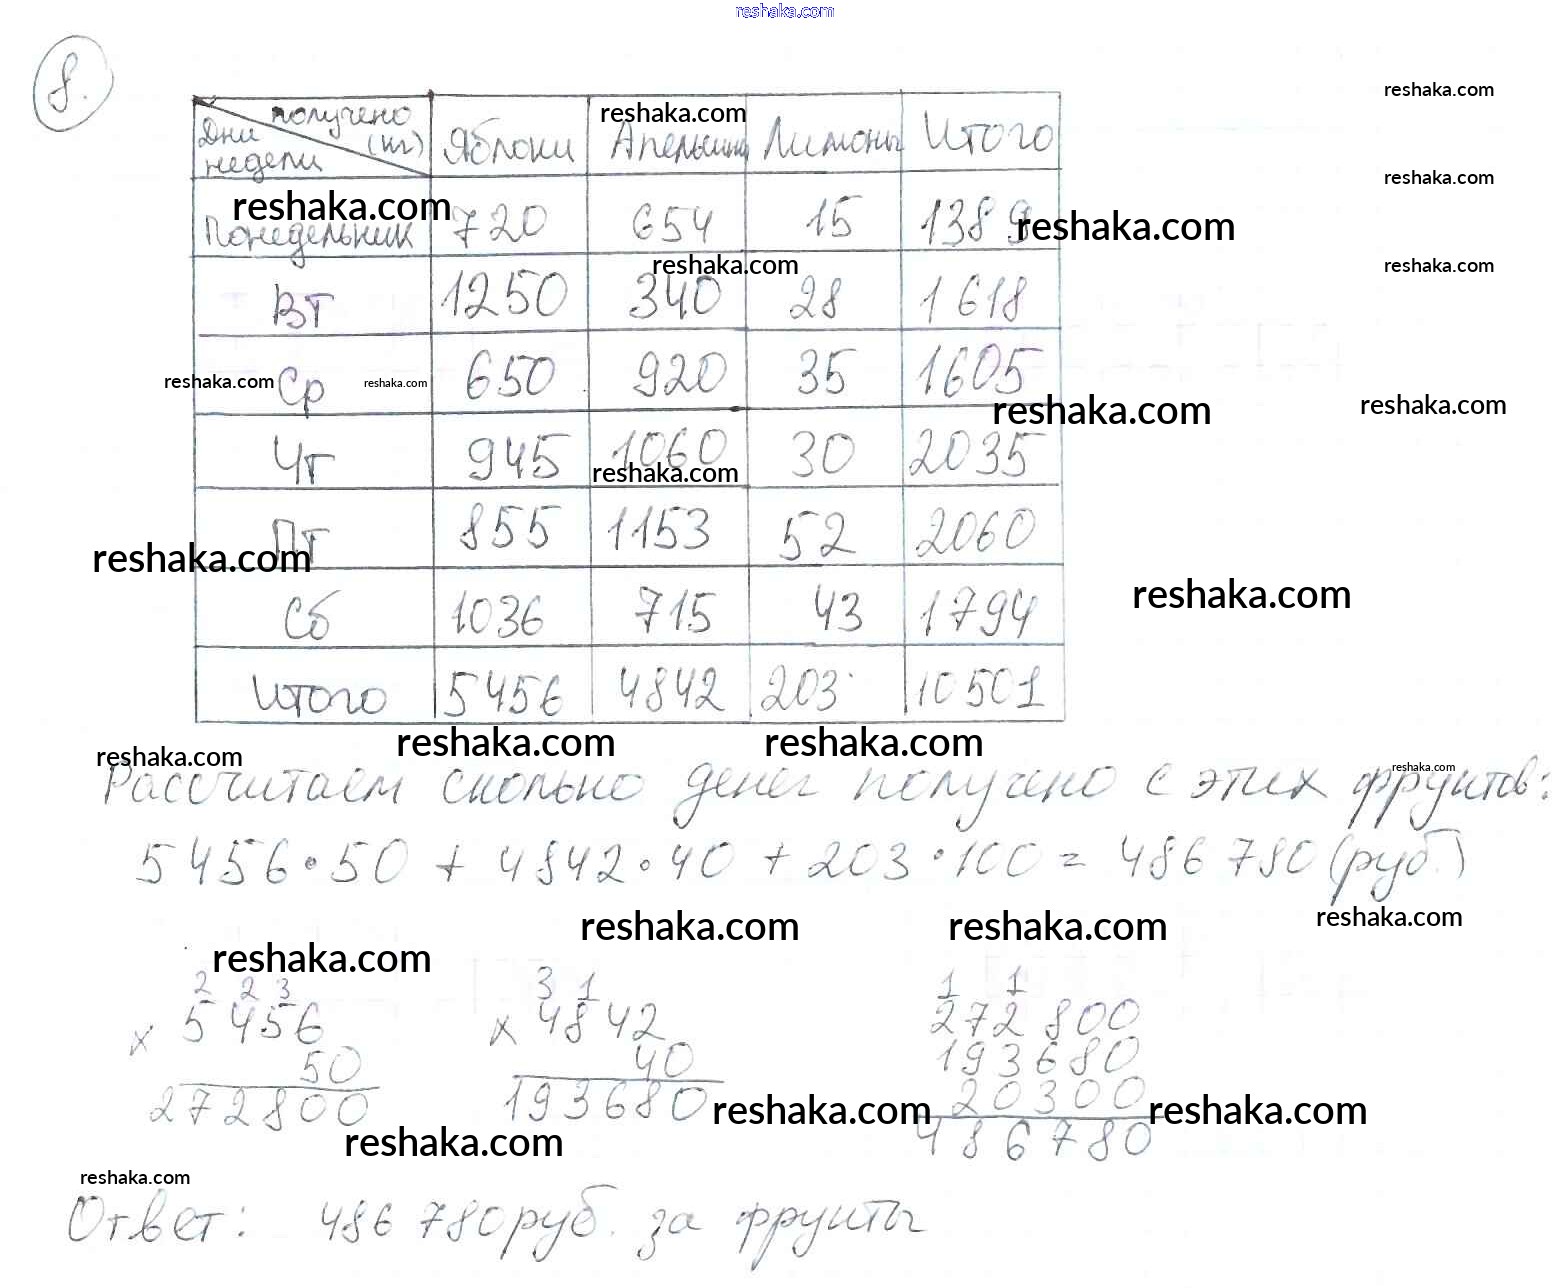 reshaka.com
8.
reshaka.com
получено
(кг)
Дни
недели
Яблоки Апельсины Лимоны Итого
reshaka.com
reshaka.com
reshaka.com
Понедельник 720 654 15 1389
reshaka.com
reshaka.com
reshaka.com
Вт 1250 340 28 1618
Ср 650 920 35 1605
reshaka.com reshaka.com
reshaka.com
reshaka.com
Чт 945 1060 30 2035
reshaka.com
Пт 855 1153 52 2060
reshaka.com
reshaka.com
Сб 1036 715 43 1794
Итого 5456 4842 203 10501
reshaka.com reshaka.com
reshaka.com
reshaka.com
Рассчитаем сколько денег получено с этих фруктов:
5456·50 + 4842·40 + 203·100 = 486 780 (руб.)
reshaka.com reshaka.com reshaka.com
reshaka.com
2 2 3 3 1 1 1
× 5456 × 4842 272 800
50 40 193680
20300
272800 193680 486780
reshaka.com reshaka.com
reshaka.com
reshaka.com
Ответ: 486 780 руб. за фрукты